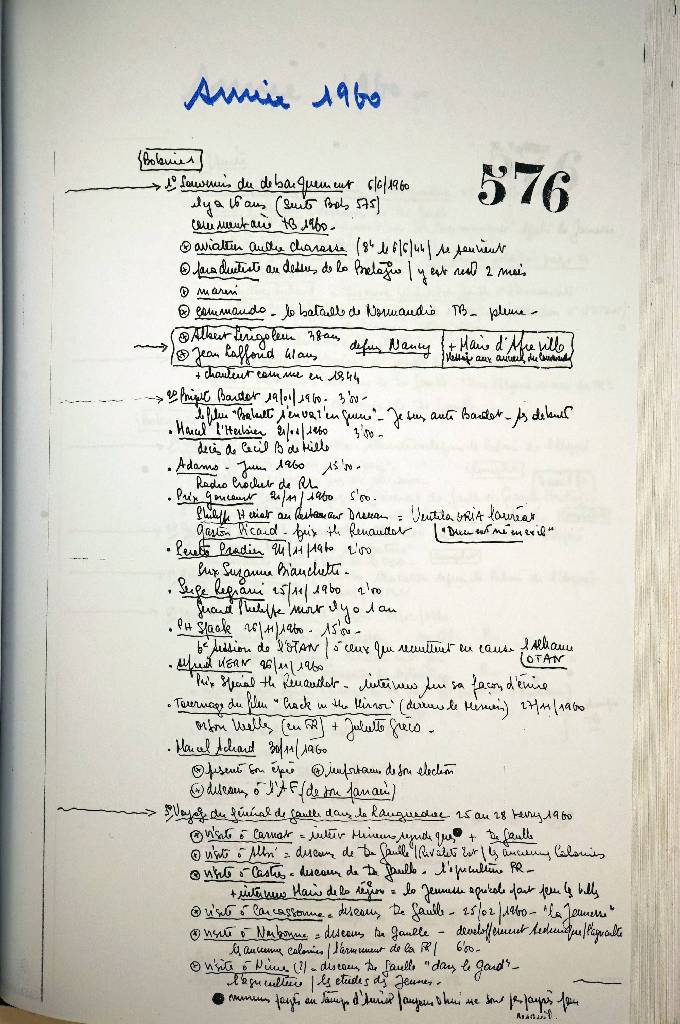 Année 1960
576
Bobine 1
1° Souvenirs du débarquement 6/6/1960
il y a 16 ans (suite Bob 575)
commentaire TB 1960.
aviateur André Charasse (le 6/6/44) se souvient
parachutiste au dessus de la Bretagne / y est resté 2 mois
marin
commando - la bataille de Normandie TB -
Albert 38 ans
Jean Laffond 41 ans
depuis Nancy
+ Maire d'
+ chantent comme en 1944
2° Brigit Bardot 19/01/1960 - 3'00 -
le film "Babette s'en va t'en guerre" - Je suis anti Bardot - ses débuts
. Marcel l'Herbier 21/01/1960 3'00 -
décès de Cecil B de Mille
. Adamo - Juin 1960 15'00 -
Radio Crochet de RL
. Prix Goncourt 21/11/1960 5'00 -
Philippe Hériat au Restaurant Drouan = Ventila ORIA lauréat
Gaston Picard - prix th Renaudot "Dieu est né en exil"
. 24/11/1960 2'00
Prix Suzanne Bianchetti -
. Serge Reggiani 25/11/1960 2'00
Gérard Philippe mort il y a 1 an
. PH Spaak 26/11/1960 - 15'00 -
6e session de l'OTAN / à ceux qui remettent en cause l'alliance
OTAN
. Alfred KERN 26/11/1960
Prix Spécial th Renaudot - interview sur sa façon d'écrire
. Tournage du film "Crack in the Mirror" (derrière le Miroir) 27/11/1960
Orson Welles (en FR) + Juliette Gréco -
. Marcel Achard 30/11/1960
présente son épée importance de son élection
discours à l'AF (de son parrain)
3° Voyage du Général de Gaulle dans le Languedoc 25 au 28 février 1960
visite à Carmaux = interv Mineurs syndiqués + De Gaulle
visite à Albi = discours de De Gaulle / Rivalité Est / les anciennes Colonies
visite à Castres = discours de De Gaulle - l'agriculture FR -
+ interview Maire de la région = la jeunesse agricole part pour les villes
visite à Carcassonne = discours De Gaulle - 25/02/1960 - "la Jeunesse"
visite à Narbonne = discours De Gaulle - développement technique /
les anciennes colonies / l'armement de la FR / 6'00 -
visite à Nîme (?) - discours De Gaulle "dans le Gard" -
l'agriculture / les études des Jeunes -